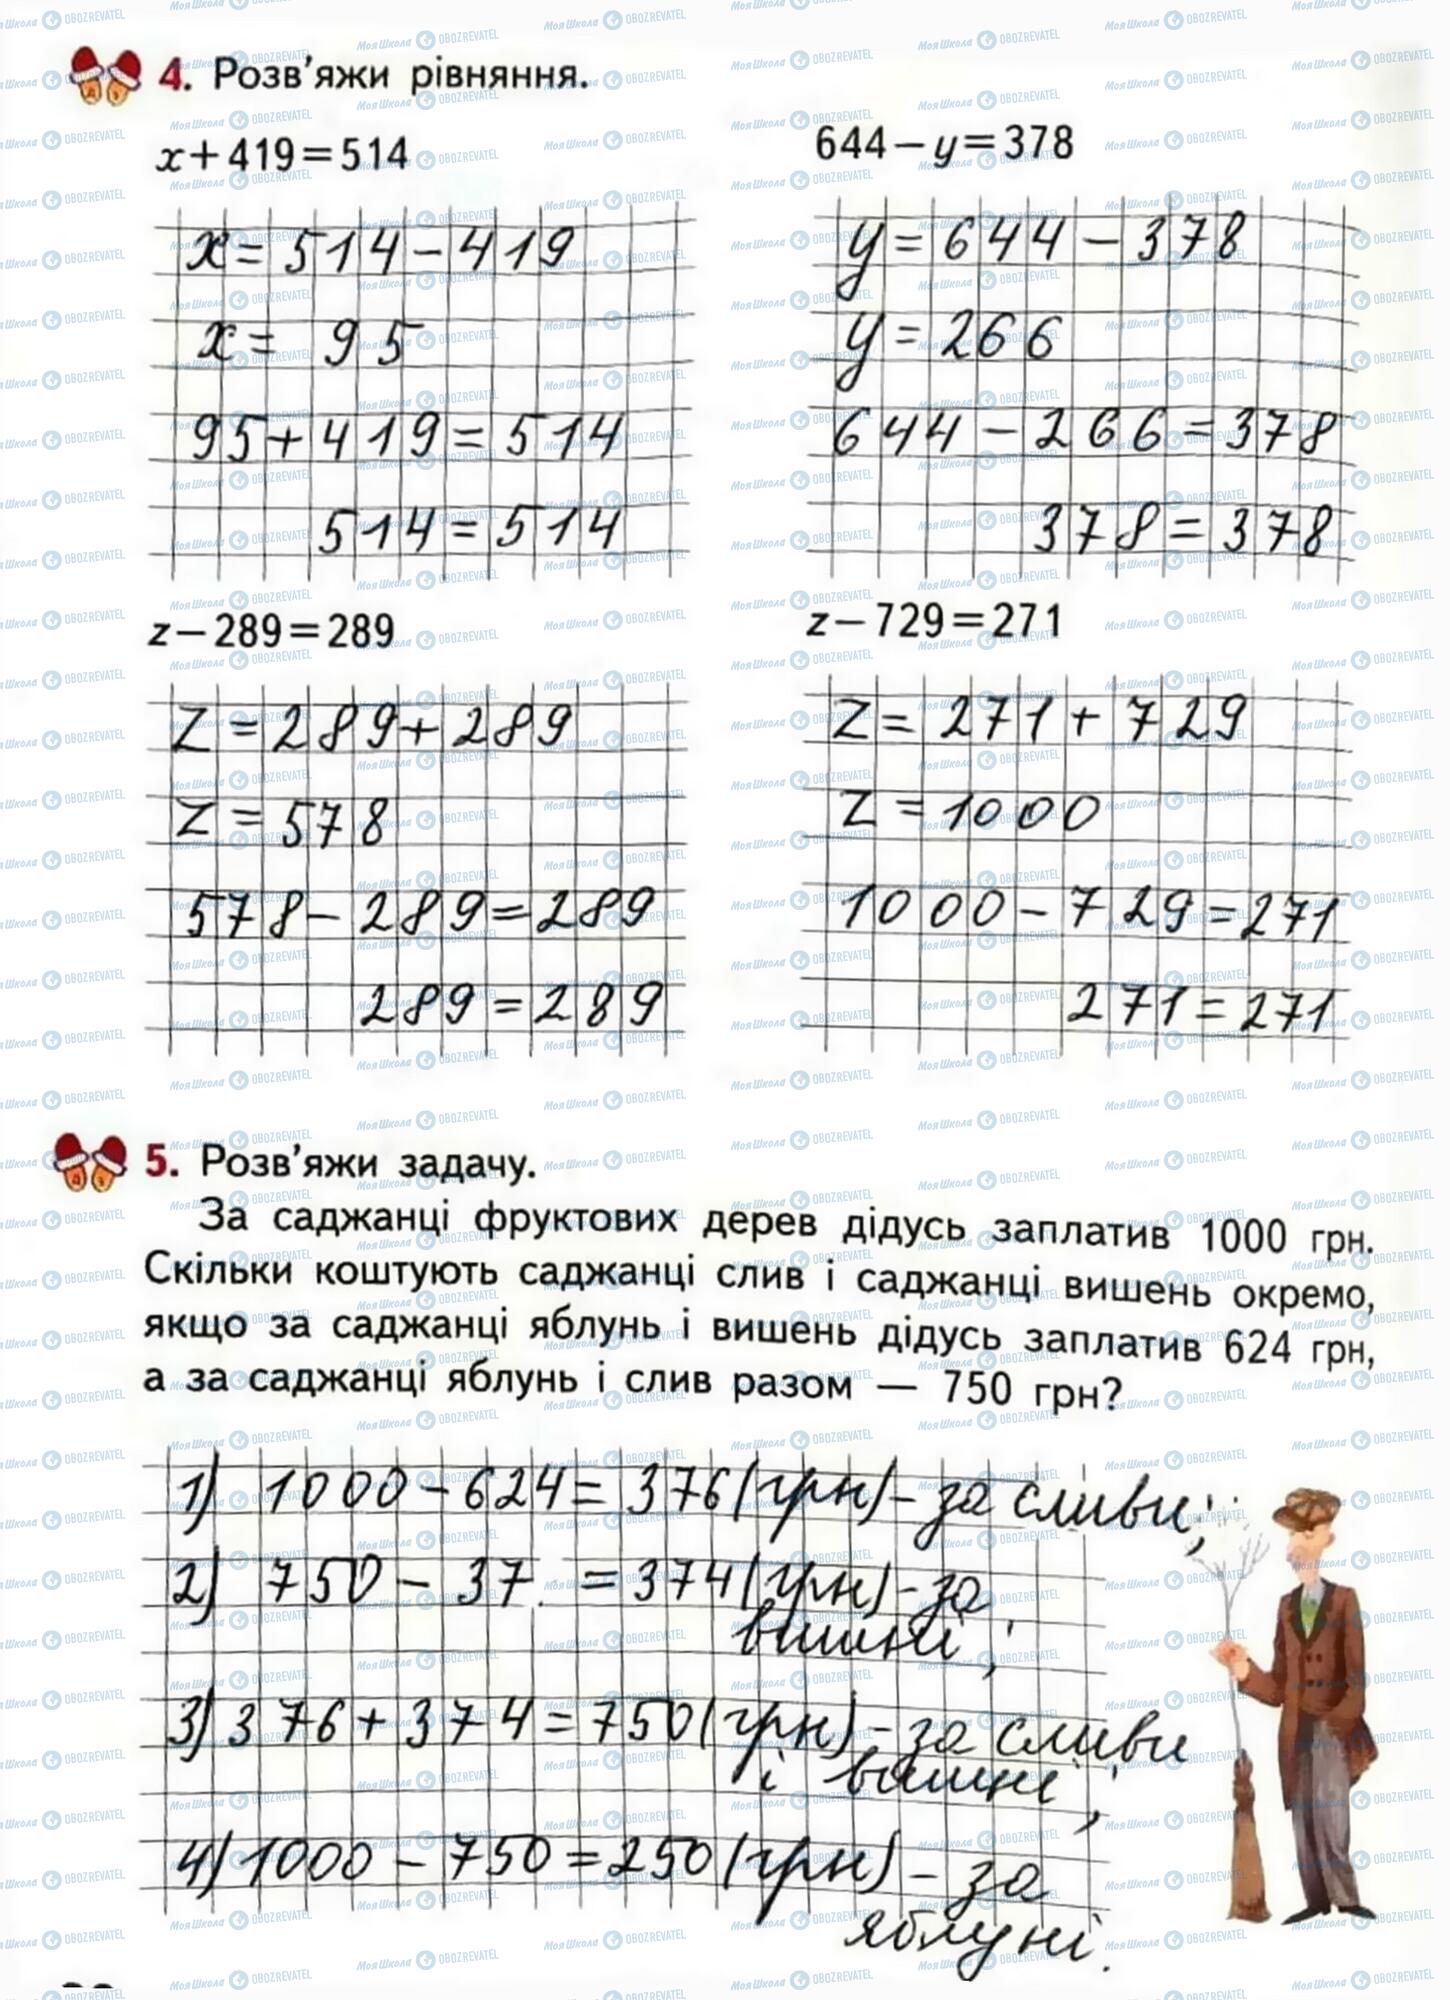 4. Розв'яжи рівняння.
x+419=514
x=514-419
x= 95
95+419=514
514=514
644-y=378
y=644-378
y=266
644-266=378
378=378
z-289=289
z=289+289
z=578
578-289=289
289=289
z-729=271
z=271+729
z=1000
1000-729=271
271=271
5. Розв'яжи задачу.
За саджанці фруктових дерев дідусь заплатив 1000 грн.
Скільки коштують саджанці слив і саджанці вишень окремо,
якщо за саджанці яблунь і вишень дідусь заплатив 624 грн,
а за саджанці яблунь і слив разом — 750 грн?
1) 1000-624=376(грн)-за сливи;
2) 750-37 =374(грн)-за
вишні;
3) 376+374=750(грн)-за сливи
і вишні;
4) 1000-750=250(грн)-за
яблуні.
МояШкола OBOZREVATEL